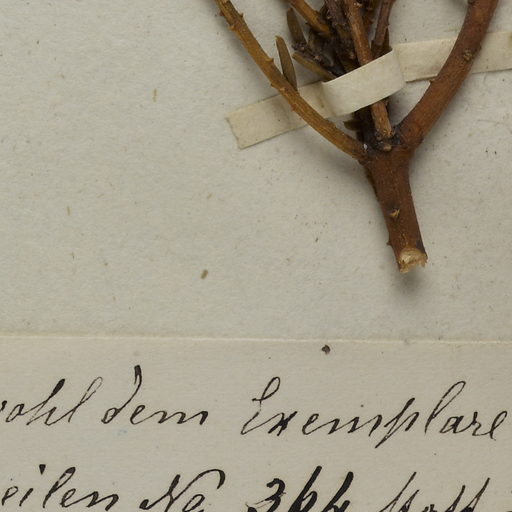 wohl dem Exemplare
eilen No 364